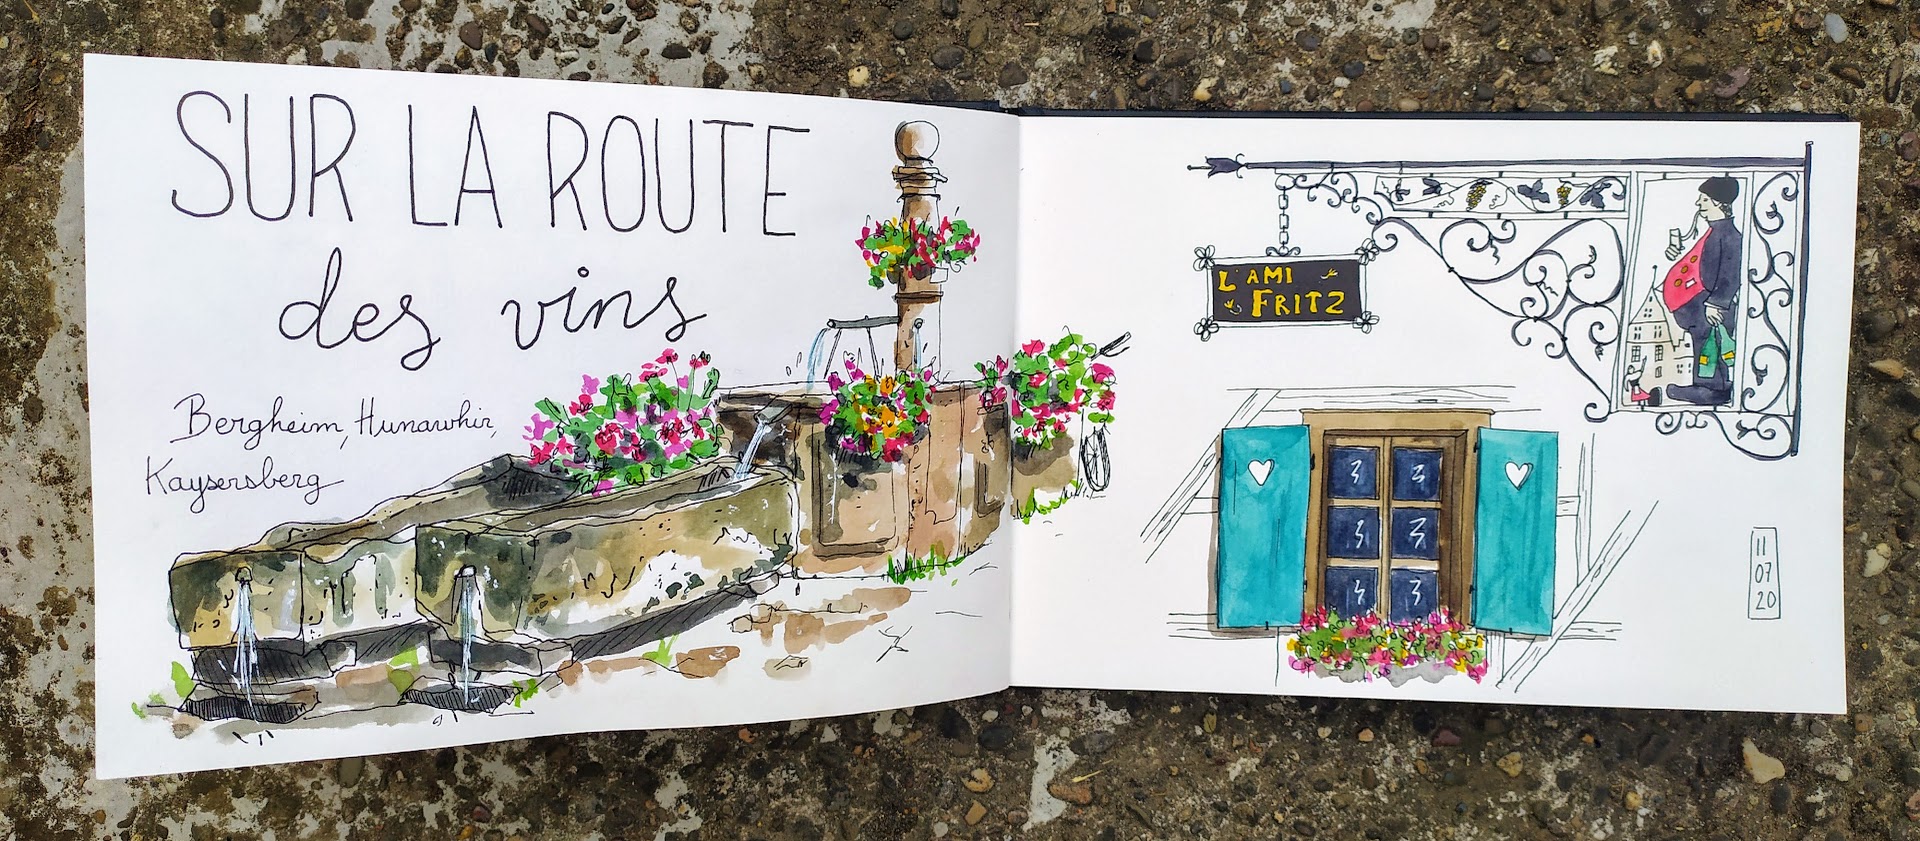 SUR LA ROUTE
des vins
Bergheim, Hunawhir,
Kaysersberg
L'AMI
FRITZ
11
07
20